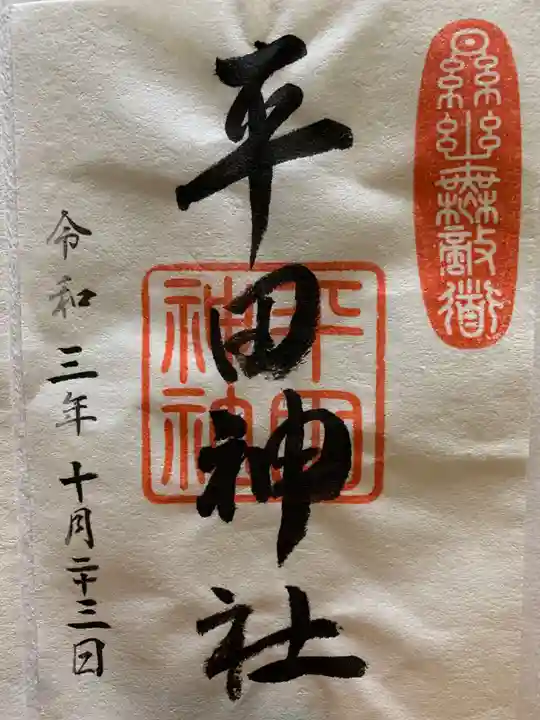 平田神社
平田
神社
令和三年十月二十三日